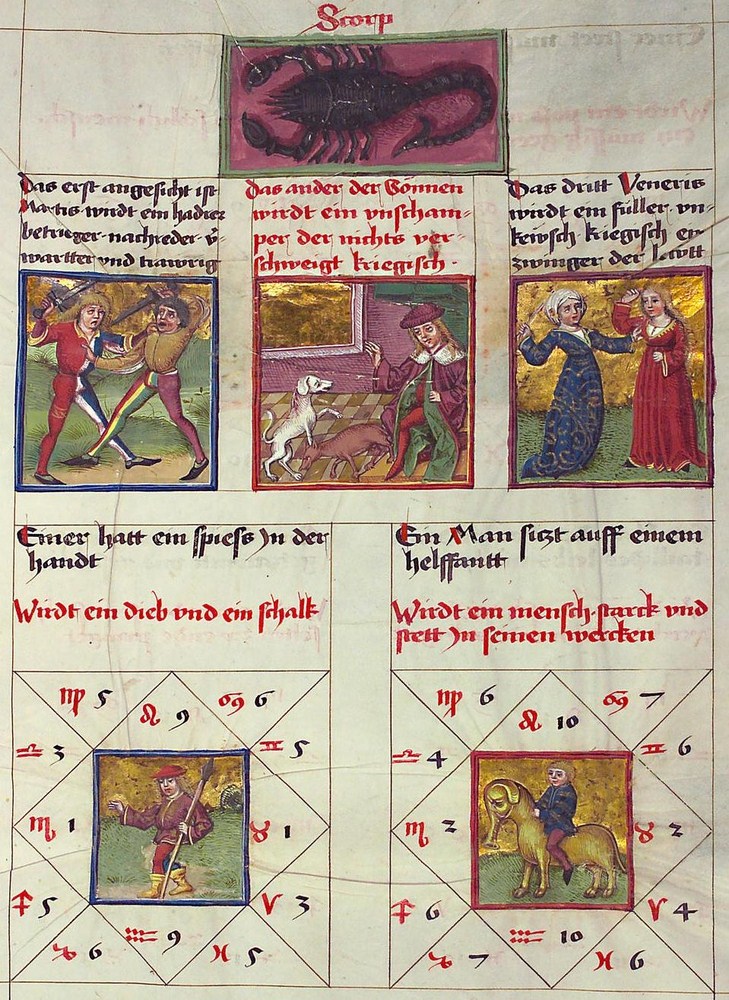 Scorp
Das erst angesicht ist
Martis wirdt ein hadrer
betrieger nachreder v̈-
wartter vnd trawrig
Das ander der Sonnen
wirdt ein vnscham-
per der nichts ver-
schweigt kriegisch ·
Das dritt Veneris
wirdt ein füller · vn-
kewsch kriegisch ein
zwinger der lewtt
Einer hatt ein spiess Jn der
handt
Wirdt ein dieb vnd ein schalk
Ein Man sitzt auff einem
helffantt
Wirdt ein mensch · starck vnd
stett Jn seinen wercken
♍ 5 ♌ 9 ♋ 6
♎ 3 ♊ 5
♏ 1 ♉ 1
♐ 5 ♈ 3
♑ 6 ♒ 9 ♓ 5
♍ 6 ♌ 10 ♋ 7
♎ 4 ♊ 6
♏ 2 ♉ 2
♐ 6 ♈ 4
♑ 7 ♒ 10 ♓ 6